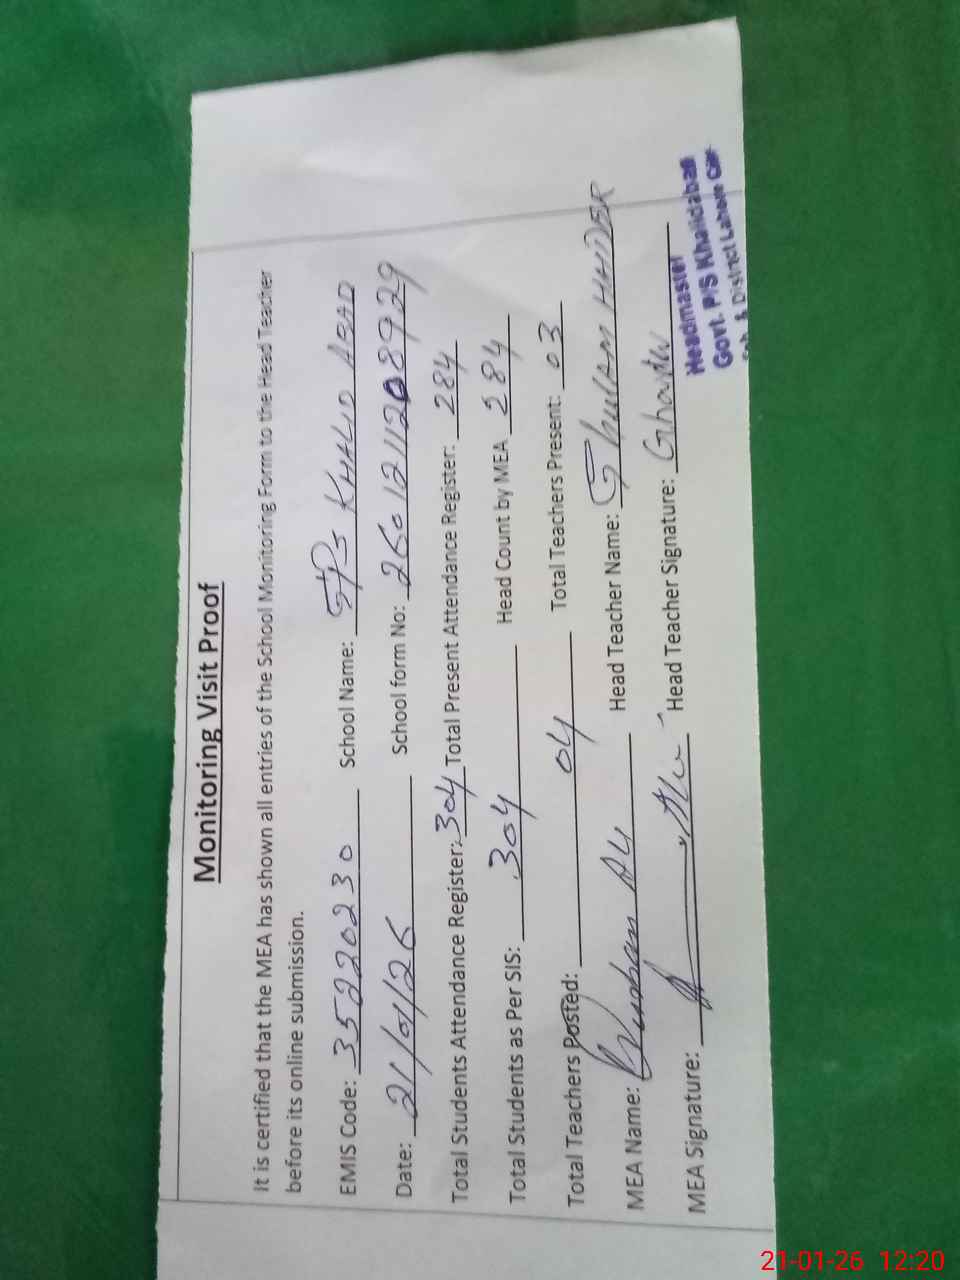 Monitoring Visit Proof
It is certified that the MEA has shown all entries of the School Monitoring Form to the Head Teacher
before its online submission.
EMIS Code: 35220230 School Name: GPS KHALID ABAD
Date: 21/01/26 School form No: 26012111208929
Total Students Attendance Register: 304 Total Present Attendance Register: 284
Total Students as Per SIS: 304 Head Count by MEA 284
Total Teachers Posted: 04 Total Teachers Present: 03
MEA Name: Head Teacher Name: GhulAM HAIDER
MEA Signature: Head Teacher Signature:
Headmaster
Govt. P/S Khalidabad
& District Lahore
21-01-26 12:20